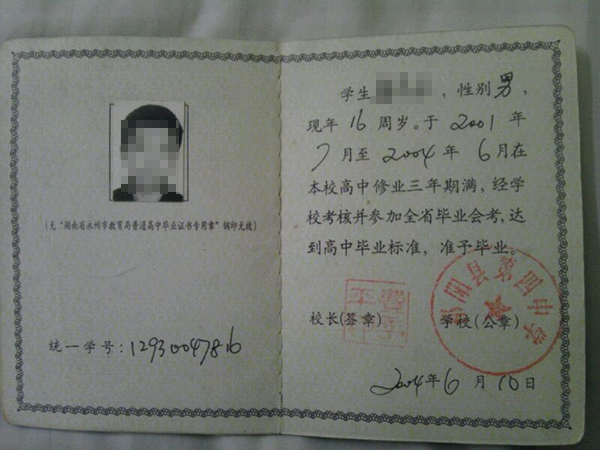 (无"湖南省永州市教育局普通高中毕业证书专用章"钢印无效)
统一学号：12930047816
学生 ，性别男，
现年 16 周岁。于 2001 年
7 月至 2004 年 6 月在
本校高中修业三年期满，经学
校考核并参加全省毕业会考，达
到高中毕业标准，准予毕业。
校长(签章) 学校(公章)
祁阳县第四中学
2004 年 6 月 10 日